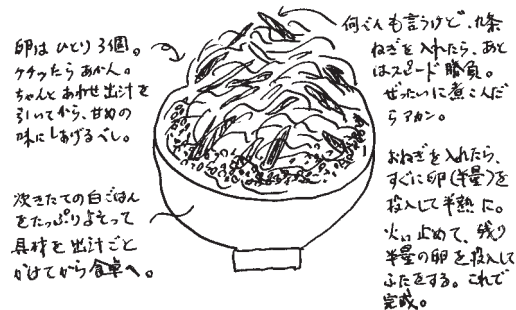 卵はひとり3個。
ケチったらあかん。
ちゃんとあわせ出汁を
引いてから、甘めの
味にしあげるべし。
炊きたての白ごはん
をたっぷりよそって
具材を出汁ごと
かけてから食卓へ。
何べんも言うけど、九条
ねぎを入れたら、あと
はスピード勝負。
ぜったいに煮こんだ
らアカン。
おねぎを入れたら、
すぐに卵(半量)を
投入して半熟に。
火ぃ止めて、残り
半量の卵を投入して
ふたをする。これで
完成。